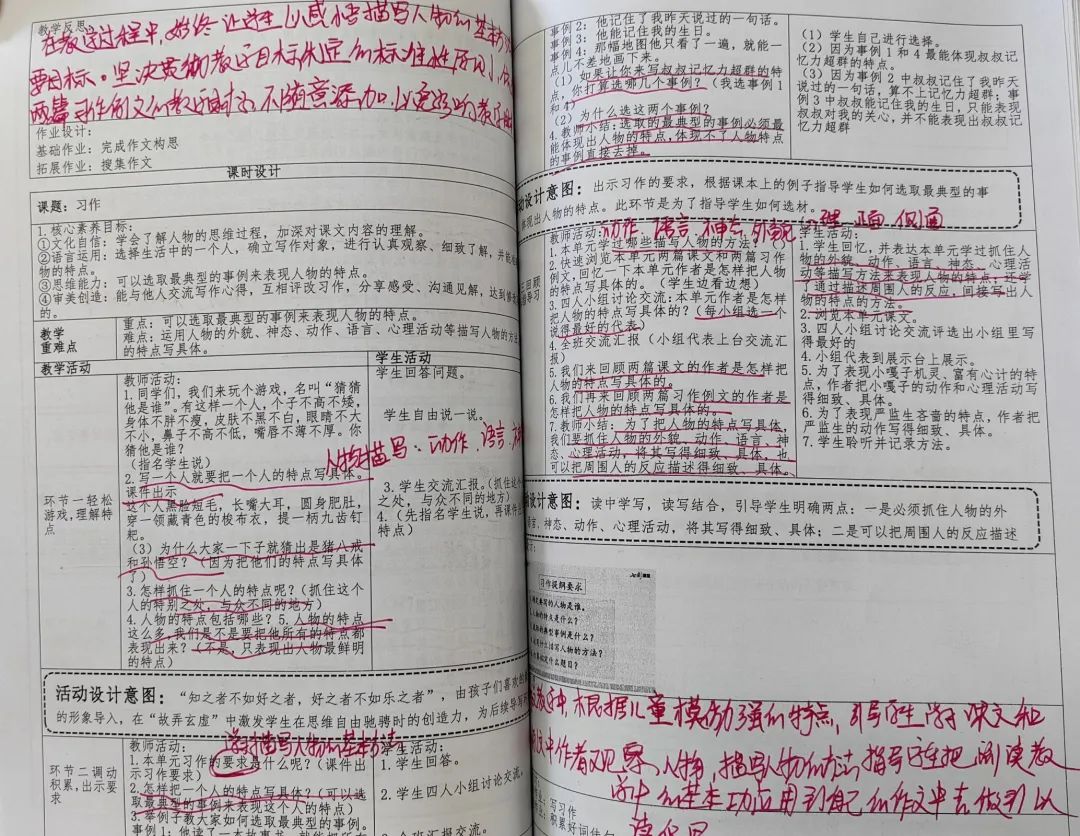 教学反思
在教学过程中,始终让学生以感悟描写人物的基本方
要目标。坚决贯彻教学目标制定的标准性
两篇习作例文的教学
作业设计:
基础作业: 完成作文构思
拓展作业: 搜集作文
课时设计
课题: 习作
1. 核心素养目标:
①文化自信: 学会了解人物的思维过程, 加深对课文内容的理解。
②语言运用: 选择生活中的一个人, 确立写作对象, 进行认真观察、细致了解, 并能
物的特点。
③思维能力: 可以选取最典型的事例来表现人物的特点。
④审美创造: 能与人交流写作心得, 互相评改习作, 分享感受、沟通见解, 达到
的。
教学
重难点
重点: 可以选取最典型的事例来表现人物的特点。
难点: 运用人物的外貌、神态、动作、语言、心理活动等描写人物的方法
的特点写具体。
教学活动
学生活动
环节一轻松
游戏, 理解特
点
教师活动:
1. 同学们, 我们来玩个游戏, 名叫“猜猜
他是谁”。有这样一个人, 个子不高不矮,
身体不胖不瘦, 皮肤不黑不白, 眼睛不大
不小, 鼻子不高不低, 嘴唇不薄不厚。你
猜他是谁?
(指名学生说)
人物描写: 动作、语言
2. 写一个人就要把一个人的特点写具体。
课件出示
这个人黑脸短毛, 长嘴大耳, 圆身肥肚,
穿一领藏青色的梭布衣, 提一柄九齿钉
耙。
(3) 为什么大家一下子就猜出是猪八戒
和孙悟空? (因为把他们的特点写具体
了)
3. 怎样抓住一个人的特点呢? (抓住这个
人的特别之处, 与众不同的地方)
4. 人物的特点包括哪些? 5. 人物的特点
这么多, 我们是不是要把他所有的特点都
表现出来? (不是, 只表现出人物最鲜明
的特点)
学生回答问题。
学生自由说一说。
3. 学生交流汇报。(抓住这个
之处, 与众不同的地方)
4. (先指名学生说, 再课件
特点)
活动设计意图: “知之者不如好之者, 好之者不如乐之者”, 由孩子们喜欢的
的形象导入, 在“故弄玄虚”中激发学生在思维自由驰骋时的创造力, 为后续导写
环节二调动
积累, 出示要
求
学习描写人物的基本方法
教师活动:
1. 本单元习作的要求是什么呢? (课件出
示习作要求)
2. 怎样把一个人的特点写具体? (可以选
取最典型的事例来表现这个人的特点)
3. 举例子教大家如何选取最典型的事例。
学生活动:
1. 学生回答。
2. 学生四人小组讨论交流,
事例2: 他记住了我昨天说过的一句话。
事例3: 他能记住我的生日。
事例4: 那幅地图他只看了一遍, 就能一
点儿不差地画下来。
(1) 如果让你来写叔叔记忆力超群的特
点, 你打算选哪几个事例? (我选事例1
和4)
(2) 为什么选这两个事例?
4. 教师小结: 选取的最典型的事例必须最
能体现出人物的特点, 体现不了人物特点
的事例直接去掉。
(1) 学生自己进行选择。
(2) 因为事例1和4最能体现叔叔记
忆力超群的特点。
(3) 因为事例2中叔叔记住了我昨天
说过的一句话, 算不上记忆力超群; 事
例3中叔叔能记住我的生日, 只能表现
叔叔对我的关心, 并不能表现出叔叔记
忆力超群
动设计意图: 出示习作的要求, 根据课本上的例子指导学生如何选取最典型的事
体现出人物的特点。此环节是为了指导学生如何选材。
动作 语言 神态 外貌 心理 正面 侧面
教师活动:
1. 本单元学过哪些描写人物的方法?
2. 快速浏览本单元两篇课文和两篇习作
例文, 回忆一下本单元作者是怎样把人物
的特点写具体的。 (学生边看边想)
3. 四人小组讨论交流: 本单元作者是怎样
把人物的特点写具体的? (每小组选一个
说得最好的代表)
4. 全班交流汇报 (小组代表上台交流汇
报)
5. 我们来回顾两篇课文的作者是怎样把
人物的特点写具体的。
6. 我们再来回顾两篇习作例文的作者是
怎样把人物的特点写具体的。
7. 教师小结: 为了把人物的特点写具体,
我们要抓住人物的外貌、动作、语言、神
态、心理活动, 将其写得细致、具体, 也
可以把周围人的反应描述得细致、具体。
学生活动:
1. 学生回忆, 并表达本单元学过抓住人
物的外貌、动作、语言、神态、心理活
动等描写方法来表现人物的特点; 还学
了通过描述周围人的反应, 间接写出人
物的特点的方法。
2. 浏览本单元课文。
3. 四人小组讨论交流评选出小组里写
得最好的
4. 小组代表到展示台上展示。
5. 为了表现小嘎子机灵、富有心计的特
点, 作者把小嘎子的动作和心理活动写
得细致、具体。
6. 为了表现严监生吝啬的特点, 作者把
严监生的动作写得细致、具体。
7. 学生聆听并记录方法。
动设计意图: 读中学写, 读写结合, 引导学生明确两点: 一是必须抓住人物的外
语言、神态、动作、心理活动, 将其写得细致、具体; 二是可以把周围人的反应描述
习作提纲要求
写的人物是谁。
人物的特点是什么?
典型事例是什么?
描写人物的方法?
什么题目?
教学中,根据儿童模仿力强的特点,引导学生学习课文和
例文中作者观察人物,描写人物的方法,指导学生把阅读教
学中的基本功应用到自己的作文中去做到以
写习作
积累好词佳句